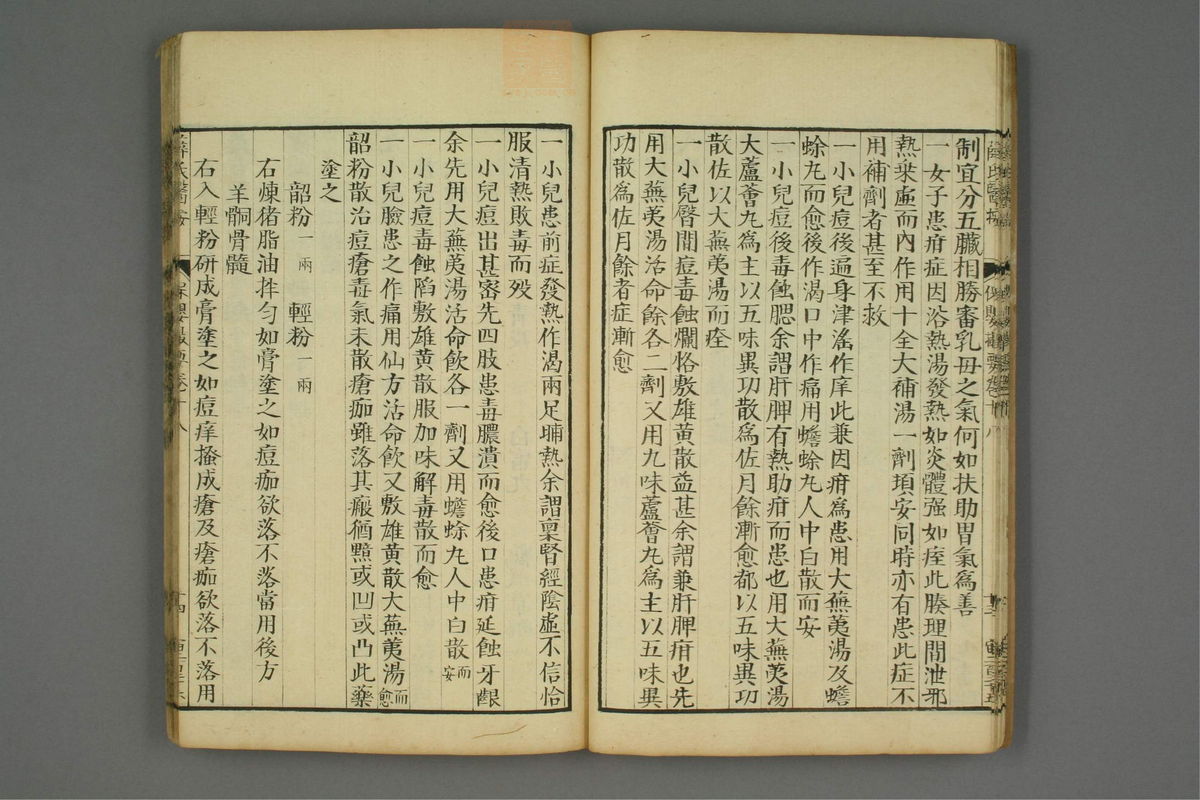 制宜分五臟相勝審乳母之氣何如扶助胃氣為善
一女子患疳症因浴熱湯發熱如炎體强如痓此腠理開泄邪
熱乗虛而內作用十全大補湯一劑頃安同時亦有患此症不
用補劑者甚至不救
一小兒痘後遍身津滛作痒此兼因疳為患用大蕪荑湯及蟾
蜍丸而愈後作渴口中作痛用蟾蜍丸人中白散而安
一小兒痘後毒蝕腮余謂肝脾有熱助疳而患也用大蕪荑湯
大蘆薈丸為主以五味異功散為佐月餘漸愈都以五味異功
散佐以大蕪荑湯而痊
一小兒臀間痘毒蝕爛恪敷雄黃散益甚余謂兼肝脾疳也先
用大蕪荑湯活命飲各二劑又用九味蘆薈丸為主以五味異
功散為佐月餘者症漸愈
一小兒患前症發熱作渴兩足晡熱余謂稟腎經陰虛不信恰
服清熱敗毒而歿
一小兒痘出甚密先四肢患毒膿潰而愈後口患疳延蝕牙齦
余先用大蕪荑湯活命飲各一劑又用蟾蜍丸人中白散而安
一小兒痘毒蝕陷敷雄黃散服加味解毒散而愈
一小兒臉患之作痛用仙方活命飲又敷雄黃散大蕪荑湯而愈
韶粉散治痘瘡毒氣未散瘡痂雖落其瘢猶黯或凹或凸此藥
塗之
韶粉一兩 輕粉一兩
右煉猪脂油拌匀如膏塗之如痘痂欲落不落當用後方
羊䯊骨髓
右入輕粉研成膏塗之如痘痒搔成瘡及瘡痂欲落不落用